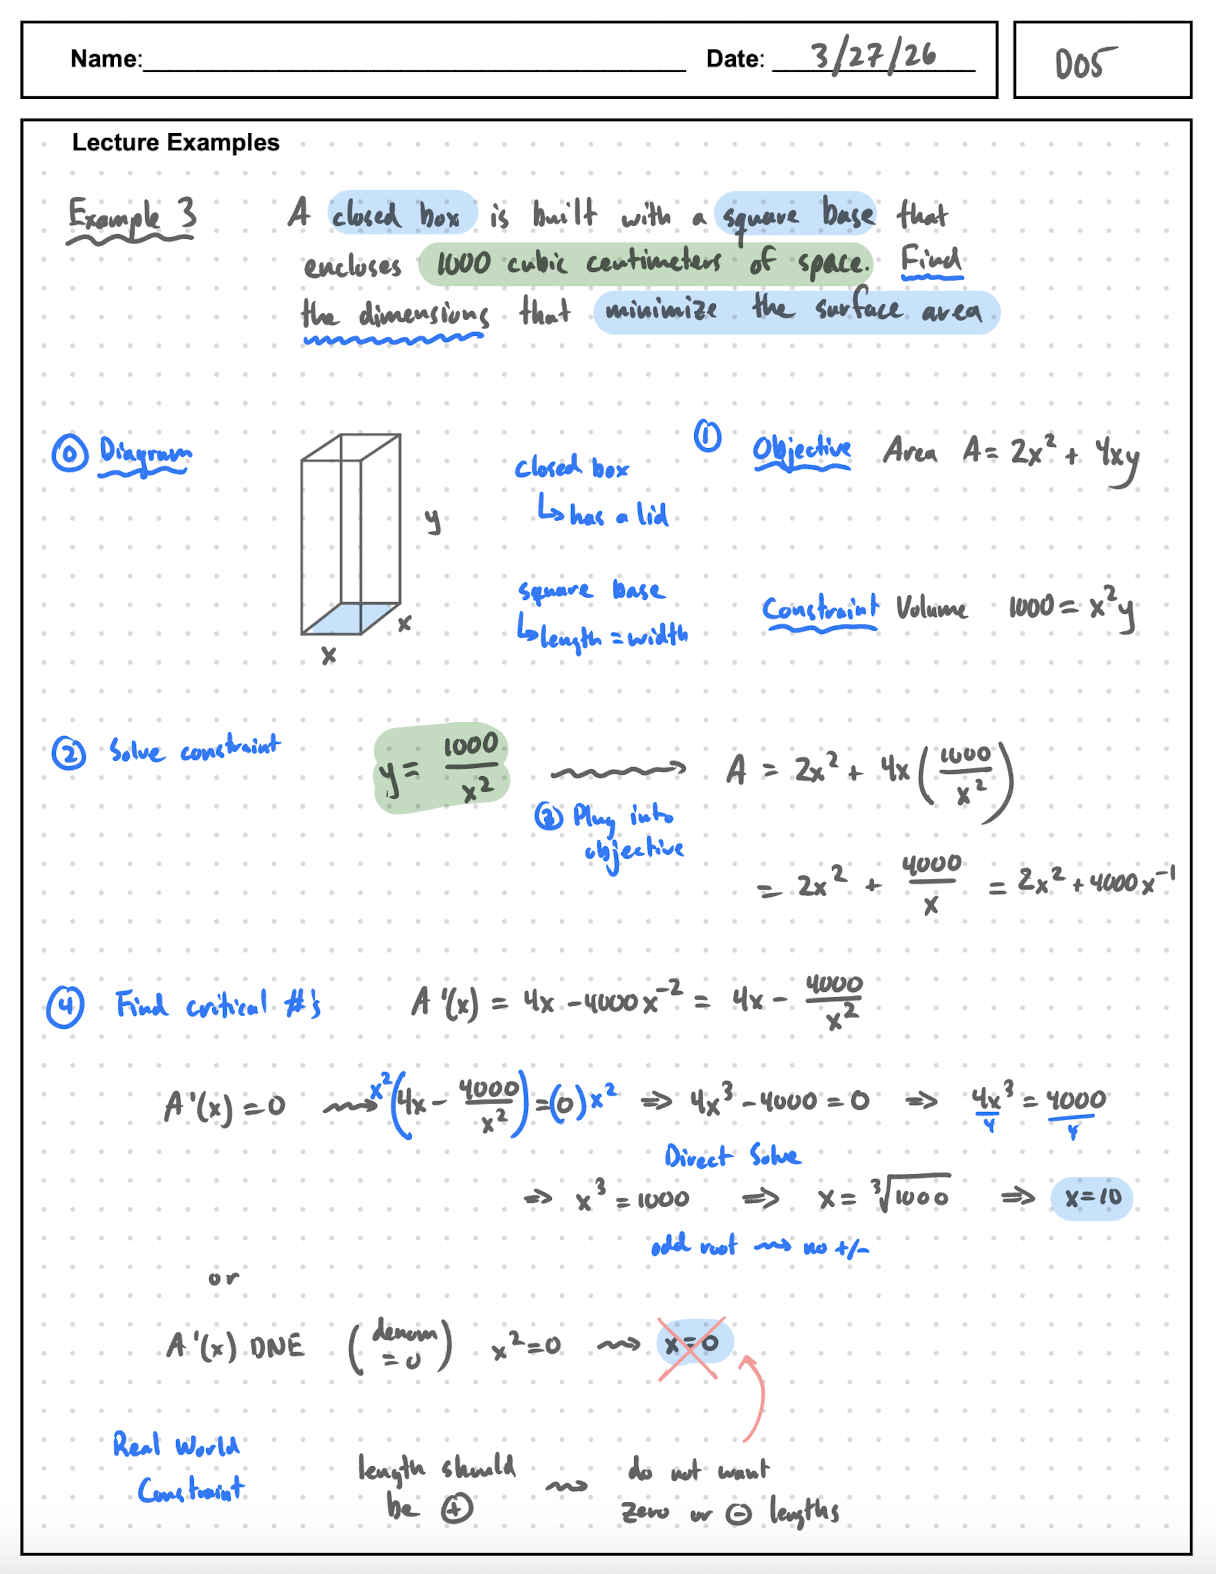 Name: Date: 3/27/26 D05
Lecture Examples
Example 3 A closed box is built with a square base that
encloses 1000 cubic centimeters of space. Find
the dimensions that minimize the surface area
⓪ Diagram
y
x
x
closed box
↳ has a lid
square base
↳ length = width
① Objective Area A = 2x² + 4xy
Constraint Volume 1000 = x²y
② Solve constraint y = 1000/x² → A = 2x² + 4x(1000/x²)
③ Plug into
objective
= 2x² + 4000/x = 2x² + 4000x⁻¹
④ Find critical #'s A'(x) = 4x - 4000x⁻² = 4x - 4000/x²
A'(x) = 0 ⇝ x²(4x - 4000/x²) = (0)x² ⇒ 4x³ - 4000 = 0 ⇒ 4x³/4 = 4000/4
Direct Solve
⇒ x³ = 1000 ⇒ x = ³√1000 ⇒ x = 10
odd root ⇝ no +/-
or
A'(x) DNE (denom = 0) x² = 0 ⇝ x = 0
Real World
Constraint
length should
be ⊕
⇝
do not want
zero or ⊖ lengths